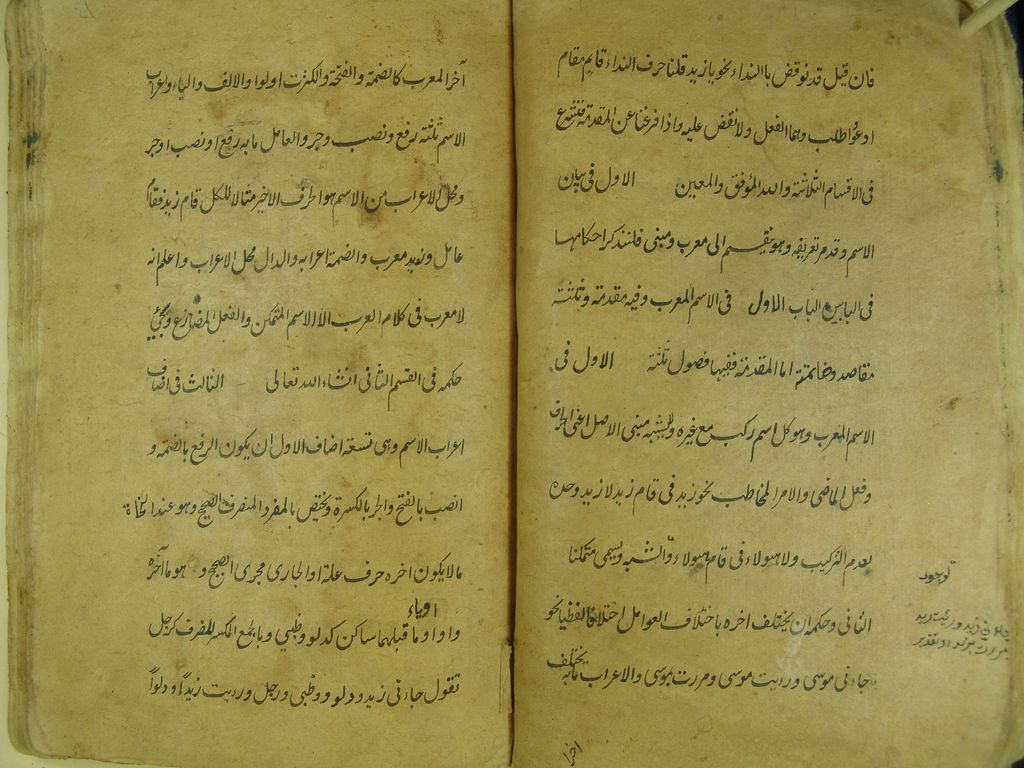 فان قيل قد نوقض بالنداء نحو يا زيد قلنا حرف النداء قايم مقام
ادعو واطلب وهما الفعل ولا نقض عليه واذا فرغنا عن المقدمة فنشرع
فى الاقسام الثلاثة والله الموفق والمعين الاول فى بيان
الاسم وقد مر تعريفه وهو ينقسم الى معرب ومبنى فلنذكر احكامها
فى البابين الباب الاول فى الاسم المعرب وفيه مقدمة وثلثة
مقاصد وخاتمة اما المقدمة ففيها فصول ثلثة الاول فى
الاسم المعرب وهو كل اسم ركب مع غيره ولا يشبه مبنى الاصل اعنى الحرف
وفعل الماضى والامر المخاطب نحو زيد فى قام زيد لا زيد وحده
بعدم التركيب ولا هولاء فى قام هولاء والشبه ويسمى متمكنا
الثانى وحكمه ان يختلف اخره باختلاف العوامل اختلافا لفظيا نحو
جاءنى موسى ورديت موسى ومررت بموسى والاعراب مابه يختلف
لوجود
جاءنى زيد ورئيت زيد
مررت بزيد او تقدير
اخر
آخر المعرب كالضمة والفتحة والكسرت او لوا والالف والياء واعراب
الاسم ثلثة رفع ونصب وجر والعامل مابه رفع او نصب او جر
ومحل الاعراب من الاسم هو الحرف الاخير مثال الكل قام زيد فقام
عامل وزيد معرب والضمة اعرابه والدال محل الاعراب واعلم انه
لا معرب فى كلام العرب الا الاسم المتمكن والفعل المضارع وسيجئ
حكمه فى القسم الثانى انشاء الله تعالى الثالث فى اصناف
اعراب الاسم وهى تسعة اضاف الاول ان يكون الرفع بالضمة و
انصب بالفتح والجر بالكسرة ويختص بالمفرد المنصرف الصحيح وهو عند النحاة
مالا يكون اخره حرف علة او الجارى مجرى الصحيح وهو ما آخره
اوياء
واو او ما قبلهما ساكن كدلو وظبى وبالجمع المكسر المنصرف كرجل
تقول جاءنى زيد ودلو وظبى ورجل ورديت زيدا ودلوا